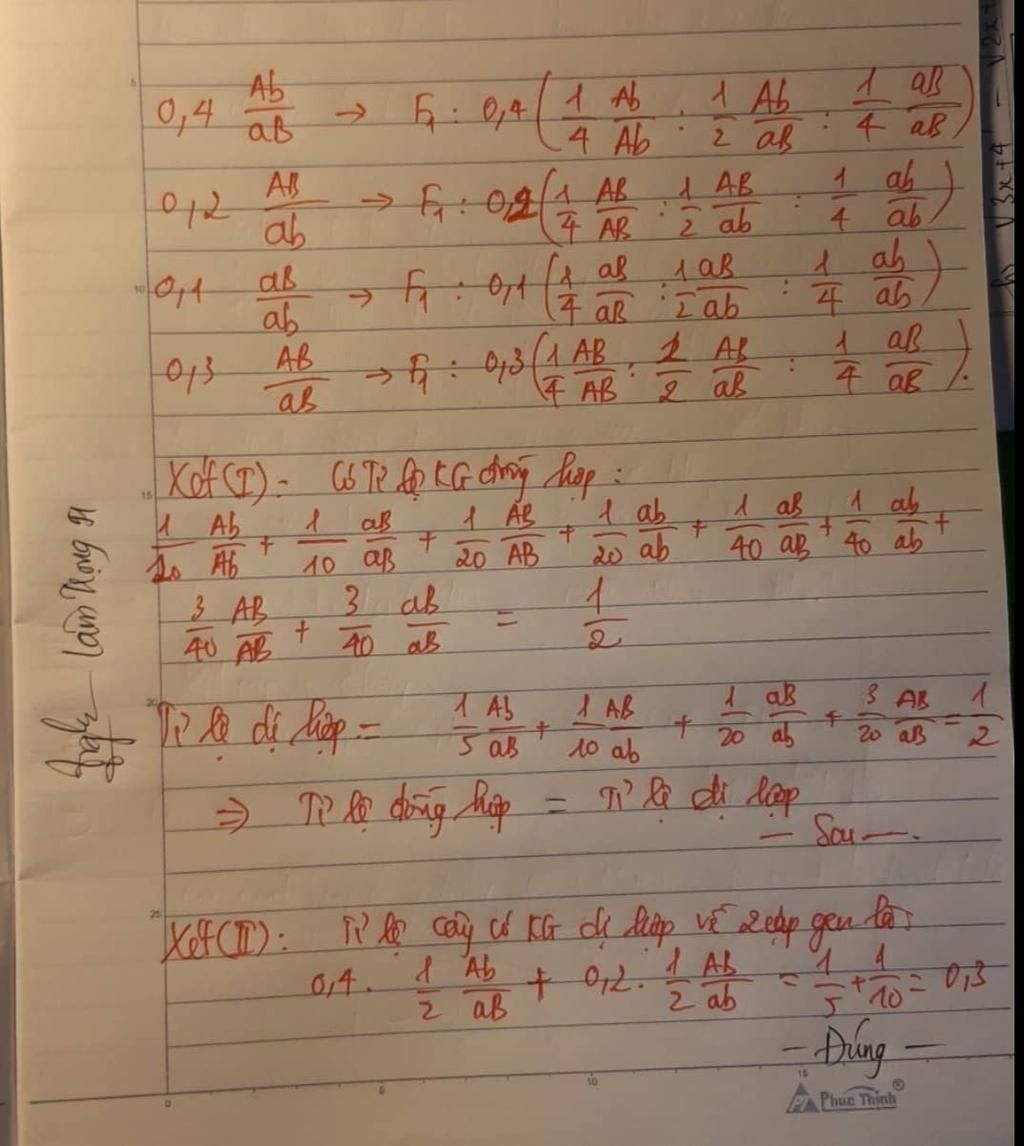 0,4 Ab/aB → F1 : 0,4 (1/4 Ab/Ab : 1/2 Ab/aB : 1/4 aB/aB)
0,2 AB/ab → F1 : 0,2 (1/4 AB/AB : 1/2 AB/ab : 1/4 ab/ab)
0,1 aB/ab → F1 : 0,1 (1/4 aB/aB : 1/2 aB/ab : 1/4 ab/ab)
0,3 AB/aB → F1 : 0,3 (1/4 AB/AB : 1/2 AB/aB : 1/4 aB/aB).
Xét (I): Có Tỉ lệ KG đồng hợp :
1/10 Ab/Ab + 1/10 aB/aB + 1/20 AB/AB + 1/20 ab/ab + 1/40 aB/aB + 1/40 ab/ab +
3/40 AB/AB + 3/40 aB/aB = 1/2
Tỉ lệ dị hợp = 1/5 Ab/aB + 1/10 AB/ab + 1/20 aB/ab + 3/20 AB/aB = 1/2
⇒ Tỉ lệ đồng hợp = Tỉ lệ dị hợp
— Sai —.
Xét (II): Tỉ lệ cây có KG dị hợp về 2 cặp gen là:
0,4. 1/2 Ab/aB + 0,2. 1/2 Ab/ab = 1/5 + 1/10 = 0,3
— Đúng —
Phuc Thinh®
5
10
15
20
25
0
5
10
15
√3x+4 - √2x+